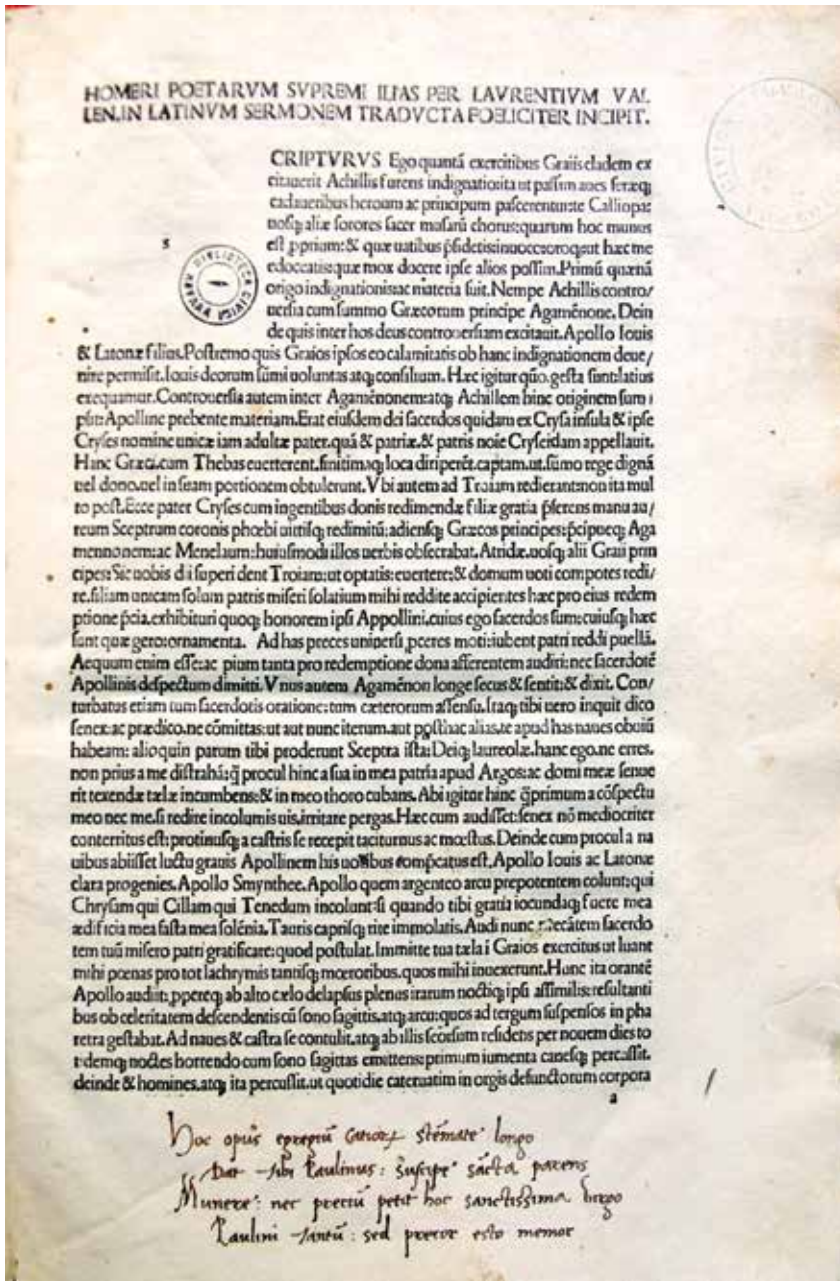 HOMERI POETARVM SVPREMI ILIAS PER LAVRENTIVM VAL
LEN.IN LATINVM SERMONEM TRADVCTA FOELICITER INCIPIT.
CRIPTVRVS Ego quantā exercitibus Graiis cladem ex
citauerit Achillis furens indignatio:ita ut passim aues feræq;
cadaueribus heroum ac principum pascerentur:te Calliopa:
uosq; aliæ sorores sacer musarū chorus:quarum hoc munus
s
est ꝓprium:& quæ uatibus p̄sidetis:inuoco:oroq;ut hæc me
edoceatis:quæ mox docere ipse alios possim.Primū quænā
origo indignationis:ac materia fuit.Nempe Achillis contro/
uersia cum summo Græcorum principe Agamēnone.Dein
de quis inter hos deus controuersiam excitauit.Apollo Iouis
& Latonæ filius.Postremo quis Graios ipsos eo calamitatis ob hanc indignationem deue/
nire permisit.Iouis deorum sūmi uoluntas atq; consilium.Hæc igitur quō.gesta sunt:latius
exequamur.Controuersia autem inter Agamēnonem:atq; Achillem hinc originem sum i
psit:Apolline prebente materiam.Erat eiusdem dei sacerdos quidam ex Crysa insula & ipse
Cryses nomine unicæ iam adultæ pater.quā & patriæ.& patris noīe Cryseidam appellauit.
Hanc Græci.cum Thebas euerterent.finitimaq; loca diriperēt.captam.ut.sūmo rege dignā
uel dono.uel in suam portionem obtulerunt.Vbi autem ad Troiam redierant:non ita mul
to post.Ecce pater Cryses cum ingentibus donis redimendæ filiæ gratia p̄ferens manu au/
reum Sceptrum coronis phœbi uittisq; redimitū:adiensq; Græcos principes:p̄cipueq; Aga
mennonem:ac Menelaum:huiusmodi illos uerbis obsecrabat.Atridæ.uosq; alii Graii prin
cipes:Sic uobis dii superi dent Troiam:ut optatis:euertere:& domum uoti compotes redi/
re.filiam unicam solum patris miseri solatium mihi reddite accipientes hæc pro eius redem
ptione p̄cia.exhibituri quoq; honorem ipsi Appollini.cuius ego sacerdos sum:cuiusq; hæc
sunt quæ gero:ornamenta. Ad has preces uniuersi ꝓceres moti:iubent patri reddi puellā.
Aequum enim esse:ac pium tanta pro redemptione dona afferentem audiri:nec sacerdotē
Apollinis despectum dimitti.Vnus autem Agamēnon longe secus & sentit:& dixit.Con/
turbatus etiam tum sacerdotis oratione:tum cæterorum assensu.Itaq; tibi uero inquit dico
senex:ac prædico.ne cōmittas:ut aut nunc iterum.aut posthac alias.te apud has naues obuiū
habeam: alioquin parum tibi proderunt Sceptra ista:Deiq; laureolæ.hanc ego.ne erres.
non prius a me distrahā:q̄ procul hinc a sua in mea patria apud Argos:ac domi meæ senue
rit texendæ tælæ incumbens:& in meo thoro cubans.Abi igitur hinc q̄primum a cōspectu
meo nec me.si redire incolumis uis.irritare pergas.Hæc cum audisset:senex nō mediocriter
conterritus est:protinusq; a castris se recepit taciturnus ac mœstus.Deinde cum procul a na
uibus abiisset luctu grauis Apollinem his uocibus comp̄catus est.Apollo Iouis ac Latonæ
clara progenies.Apollo Smynthee.Apollo quem argenteo arcu prepotentem colunt:qui
Chrysam qui Cillam qui Tenedum incolunt:si quando tibi gratia iocundaq; fuere mea
ædificia mea fasta mea solēnia.Tauris caprisq; rite immolatis.Audi nunc p̄cātem sacerdo
tem tuū misero patri gratificare:quod postulat.Immitte tua tæla i Graios exercitus ut luant
mihi pœnas pro tot lachrymis tantisq; mœroribus.quos mihi inuexerunt.Hunc ita orantē
Apollo audiit:ꝓpereq; ab alto cælo delapsus plenus irarum noctiq; ipsi assimilis:resultanti
bus ob celeritatem descendentis cū sono sagittis.atq; arcu:quos ad tergum suspensos in pha
retra gestabat.Ad naues & castra se contulit.atq; ab illis seorsum residens per nouem dies to
tidemq; noctes horrendo cum sono sagittas emittens:primum iumenta canesq; percussit.
deinde & homines.atq; ita percussit.ut quotidie cateruatim in orgis defunctorum corpora
a
BIBLIOTECA CIVICA
Hoc opus egregiū stēmate longo
Dat tibi Paulinus: suscipe sācta parens
Munere: nec preciū petit hoc sanctissima virgo
Paulini tantū: sed precor esto memor